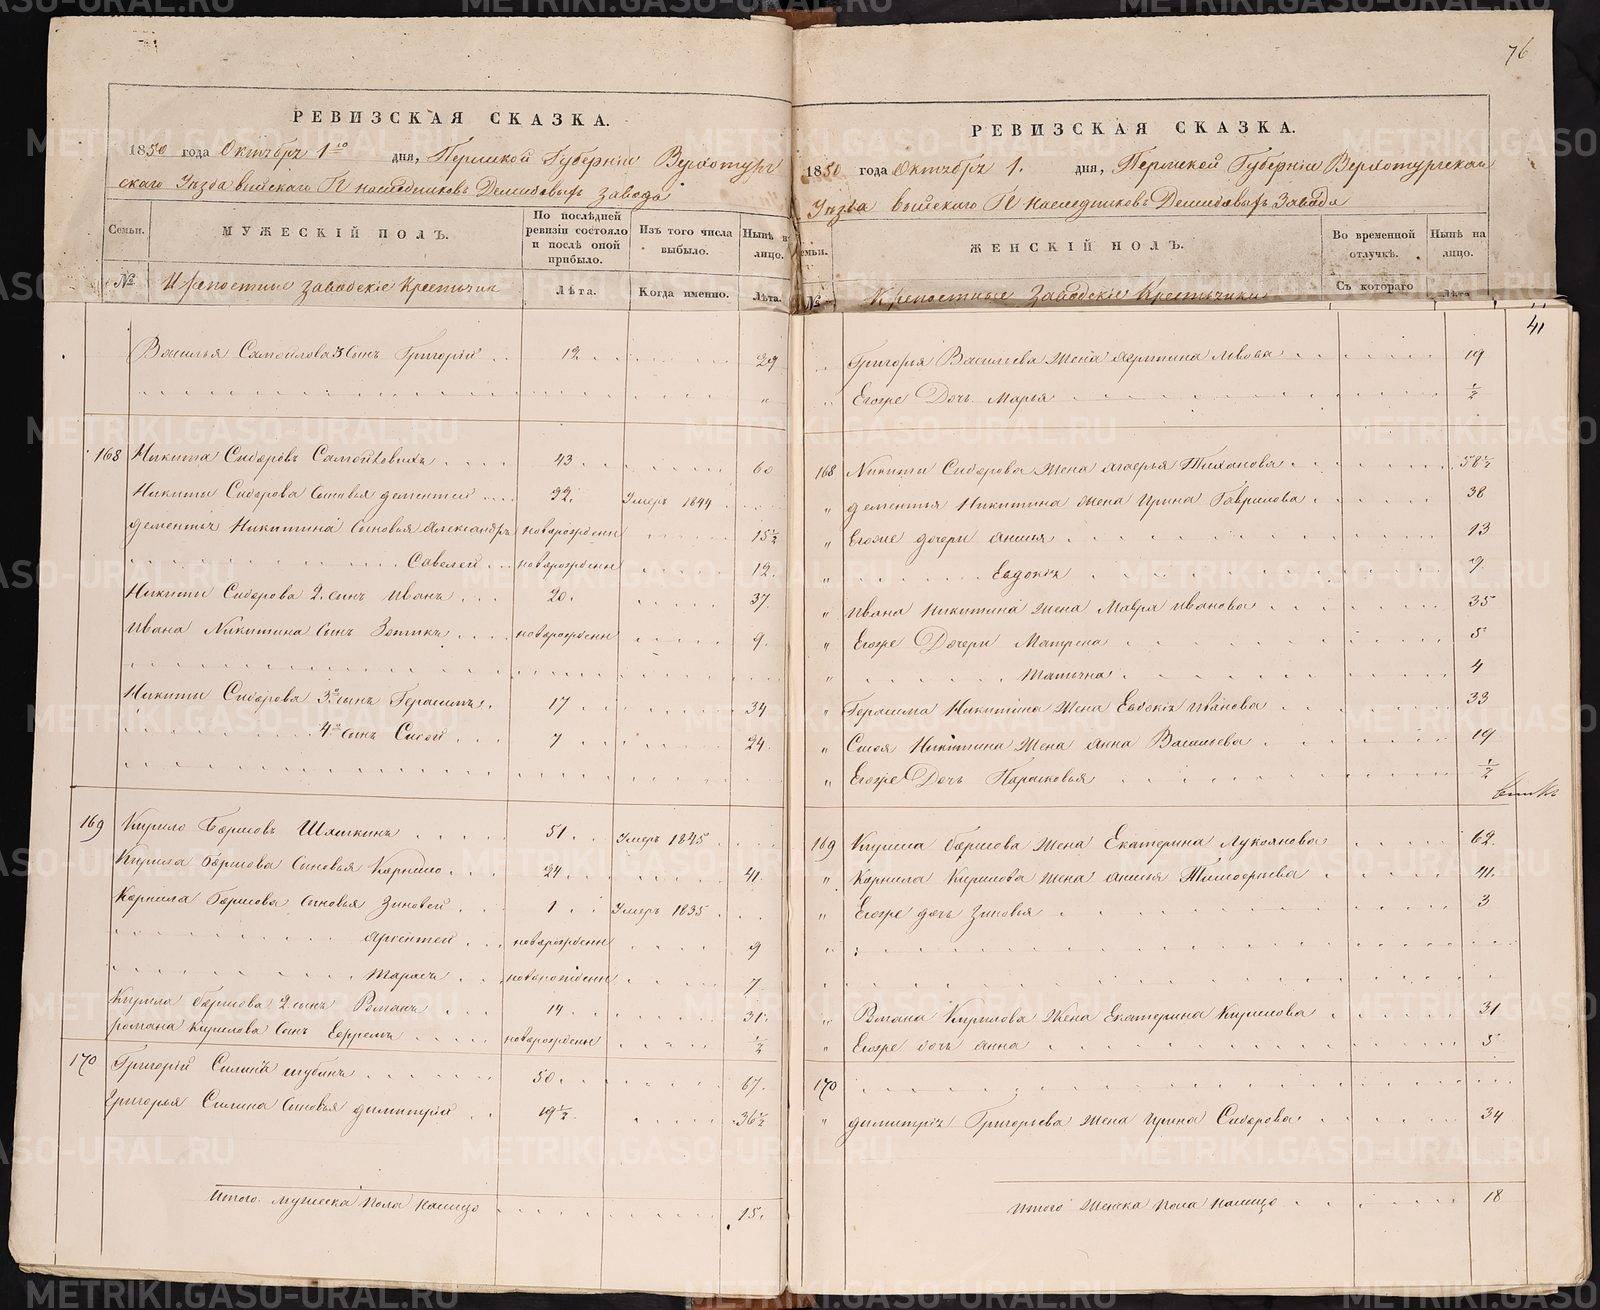 76
РЕВИЗСКАЯ СКАЗКА.
1850 года Октября 1го дня, Пермской Губерніи Верхотур
скаго Уѣзда Выйскаго Гг. наслѣдниковъ Демидовыхъ завода
Семьи.
МУЖЕСКІЙ ПОЛЪ.
По послѣдней ревизіи состояло и послѣ оной прибыло.
Изъ того числа выбыло.
Нынѣ на лицо.
№
Крепостные заводскіе Крестьяне
Лѣта.
Когда именно.
Лѣта.
Василья Самойлова 3 сынъ Григорій 12 29
168 Никита Сидоровъ 43 60
Никиты Сидорова сыновья Дементей 22. Умеръ 1844
Дементья Никитина сыновья Александръ новорожденн 15½
Савелей новорожденн 12.
Никиты Сидорова 2. сынъ Иванъ 20. 37
Ивана Никитина сынъ Зотикъ новорожденн 9.
Никиты Сидорова 3й сынъ Герасимъ 17 34
4й сынъ Сысой 7 24
169 Кирило Борисовъ 51 Умеръ 1845
Кирила Борисова сыновья Корнило 24 41.
Корнила Борисова сыновья Зиновей 1 Умеръ 1835
новорожденн 9
Тарасъ новорожденн 7
Кирила Борисова 2 сынъ Романъ 14 31.
Романа Кирилова сынъ Ефремъ новорожденн ½
170 Григорій Силинъ Шубинъ 50 67.
Григорья Силина сыновья Димитрій 19½ 36½
Итого мужеска пола налицо 15.
РЕВИЗСКАЯ СКАЗКА.
1850 года Октября 1. дня, Пермской Губерніи Верхотурскаго
Уѣзда Выйскаго Гг. наслѣдниковъ Демидовыхъ завода
Семьи.
ЖЕНСКІЙ ПОЛЪ.
Во временной отлучкѣ.
Нынѣ на лицо.
№
Крепостные Заводскіе Крестьянки
Съ котораго
Лѣта
41
Григорья Васильева жена Агрипина Львова 19
Егоже Дочь Марья ½
168 Никиты Сидорова жена Тиханова 58½
" Дементья Никитина жена Ирина Гаврилова 38
" Егоже дочери Анисья 13
" Евдокія 9
" Ивана Никитина жена Мавра Иванова 35
" Егоже Дочери Матрена 5
" Татьяна 4
" Герасима Никитина жена Евдокія Иванова 33
" Сысоя Никитина жена Анна Васильева 19
" Егоже Дочь Парасковья ½
169 Кирила Борисова жена Екатерина Лукоянова 62
" Корнила Кирилова жена Анисья Тимофеева 41.
" Егоже дочь Зиновья 3
" Романа Кирилова жена Екатерина Кирилова 31
" Егоже дочь Анна 5
170
" Димитрія Григорьева жена Ирина Сидорова 34
Итого женска пола налицо 18
METRIKI.GASO-URAL.RU